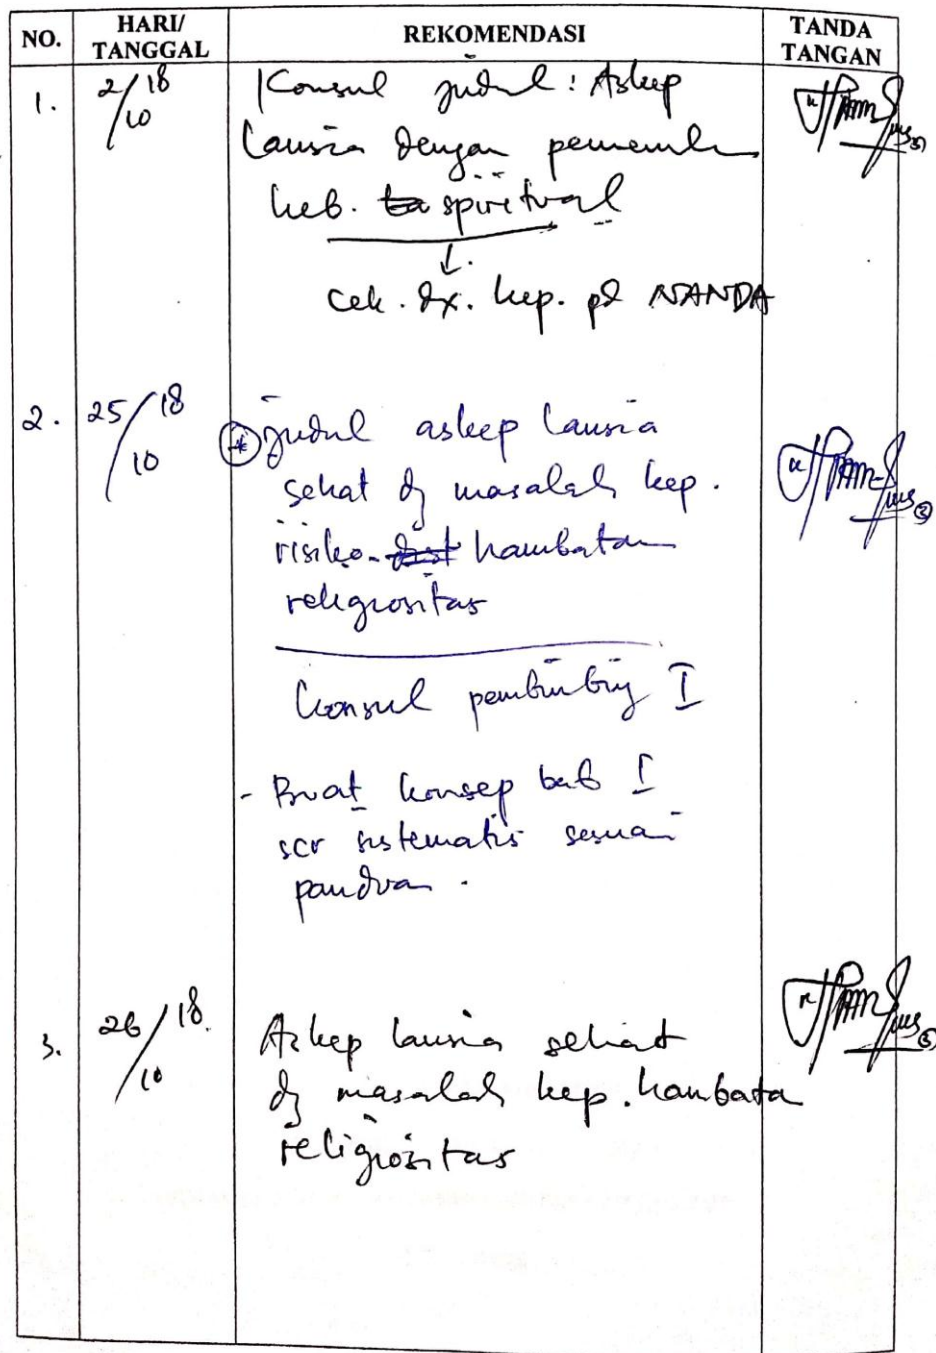 NO. HARI/ TANGGAL REKOMENDASI TANDA TANGAN
1. 2/10 18 Konsul judul : Askep
Lansia dengan pemenuh
keb. spiritual
↓
cek. dx. kep. pd NANDA
2. 25/10 18 * judul askep lansia
sehat dg masalah kep.
risiko hambatan
religiositas
Konsul pembimbing I
- Buat konsep bab I
scr sistematis sesuai
panduan.
3. 26/10 18. Askep lansia sehat
dg masalah kep. hambata
religiositas